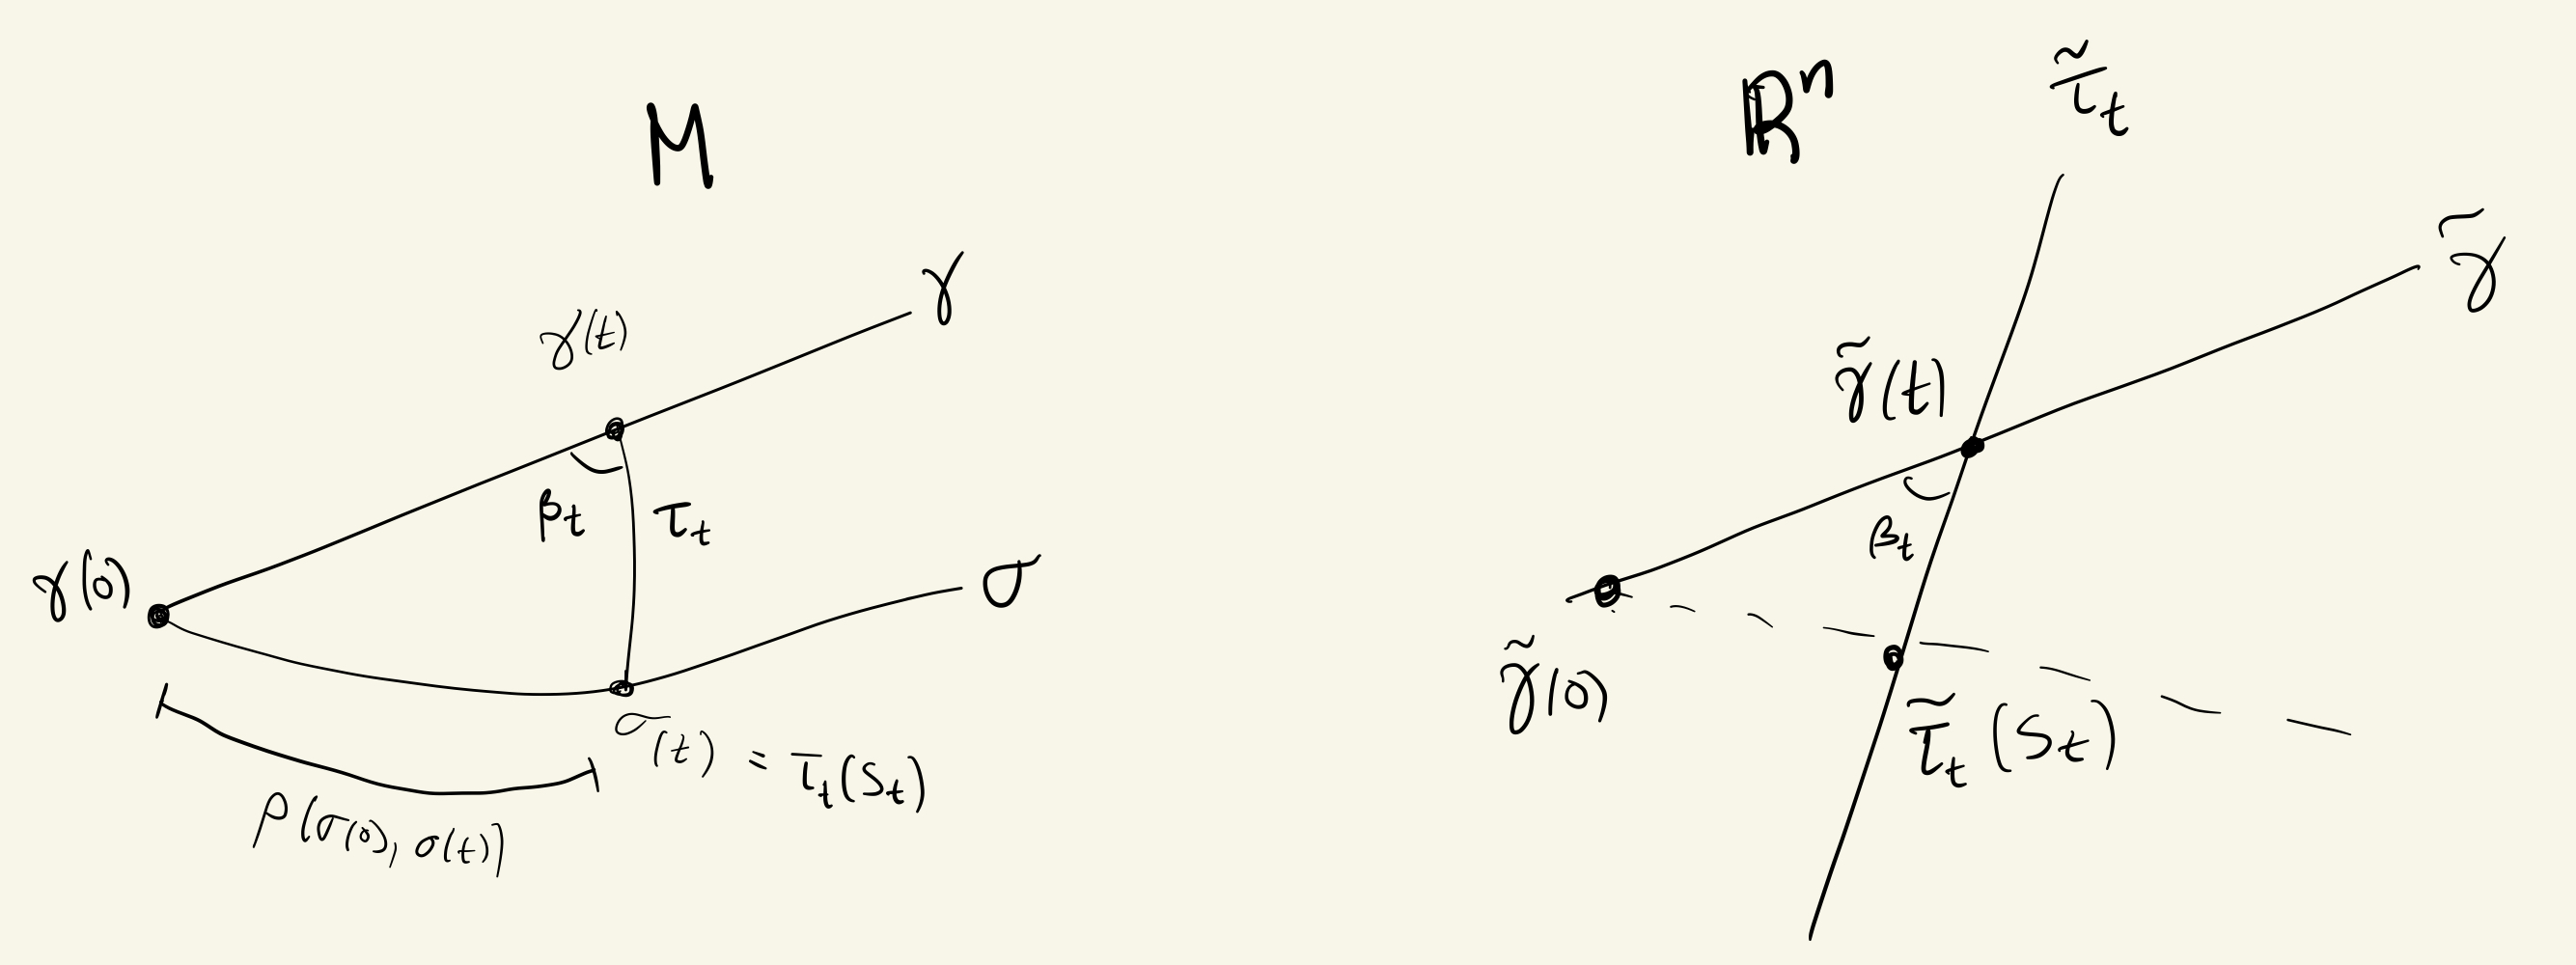 M
γ
γ(t)
β_t
τ_t
γ(0)
σ
σ(t) = τ_t(S_t)
ρ(σ(0), σ(t))
ℝⁿ
τ̃_t
γ̃
γ̃(t)
β_t
γ̃(0)
τ̃_t(S_t)